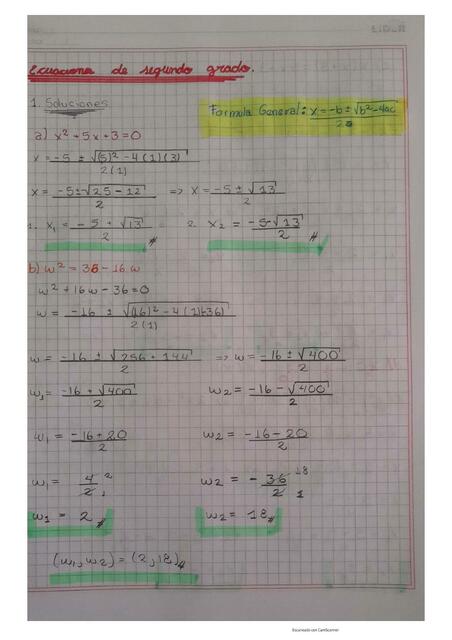 Ecuaciones de segundo grado.
1. Soluciones
Formula General: x = -b ± √b² - 4ac / 2a
a) x² + 5x + 3 = 0
x = -5 ± √(5)² - 4(1)(3) / 2(1)
x = -5 ± √25 - 12 / 2 => x = -5 ± √13 / 2
1. x₁ = -5 + √13 / 2 2. x₂ = -5 - √13 / 2
b) w² = 36 - 16w
w² + 16w - 36 = 0
w = -16 ± √(16)² - 4(1)(-36) / 2(1)
w = -16 ± √256 + 144 / 2 => w = -16 ± √400 / 2
w₁ = -16 + √400 / 2 w₂ = -16 - √400 / 2
w₁ = -16 + 20 / 2 w₂ = -16 - 20 / 2
w₁ = 4 2 / 2 1 w₂ = - 36 18 / 2 1
w₁ = 2 w₂ = 18
(w₁, w₂) = (2, 18)
Escaneado con CamScanner